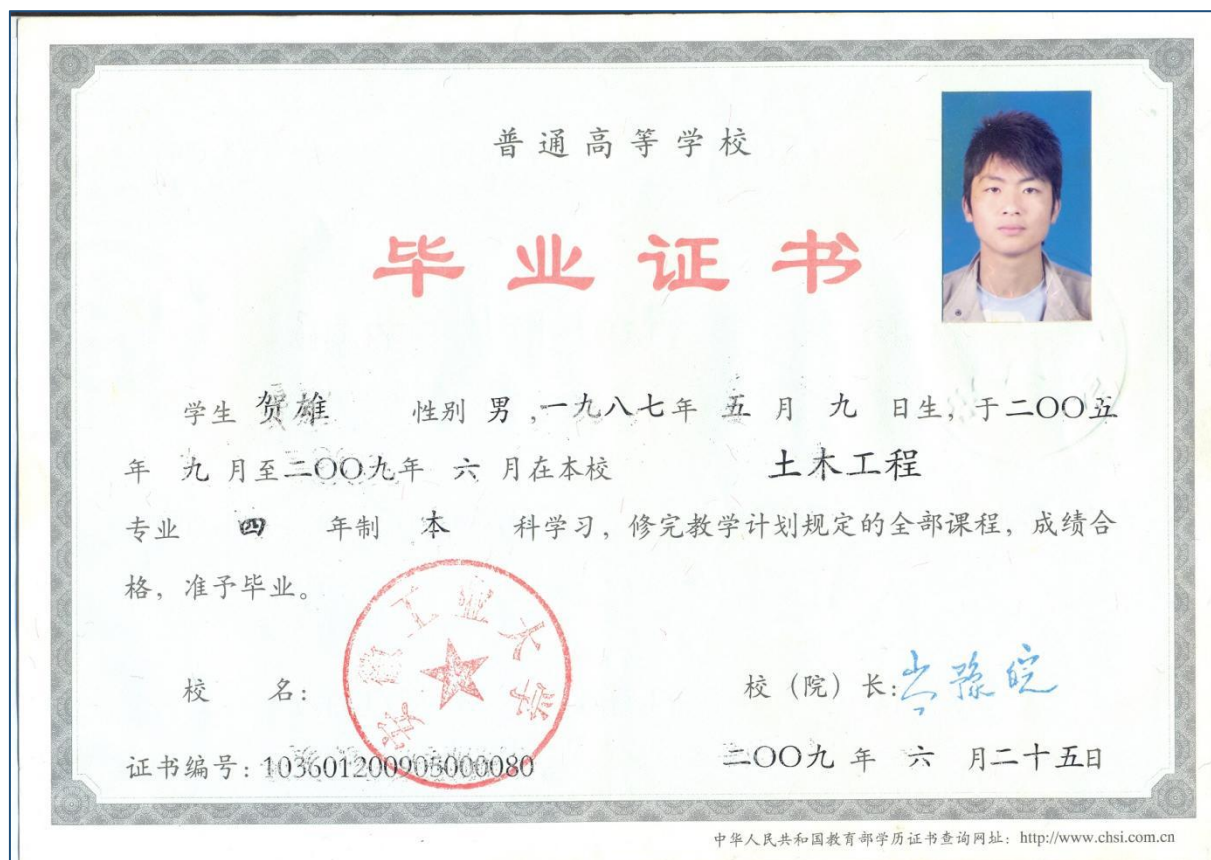 普通高等学校
毕业证书
学生 贺雄 性别 男 ,一九八七年 五 月 九 日生, 于二〇〇五
年 九 月至二〇〇九年 六 月在本校 土木工程
专业 四 年制 本 科学习, 修完教学计划规定的全部课程, 成绩合
格, 准予毕业。
安徽工业大学
校 名:
校（院）长: 岑豫皖
证书编号: 103601200905000080
二〇〇九 年 六 月二十五日
中华人民共和国教育部学历证书查询网址: http://www.chsi.com.cn